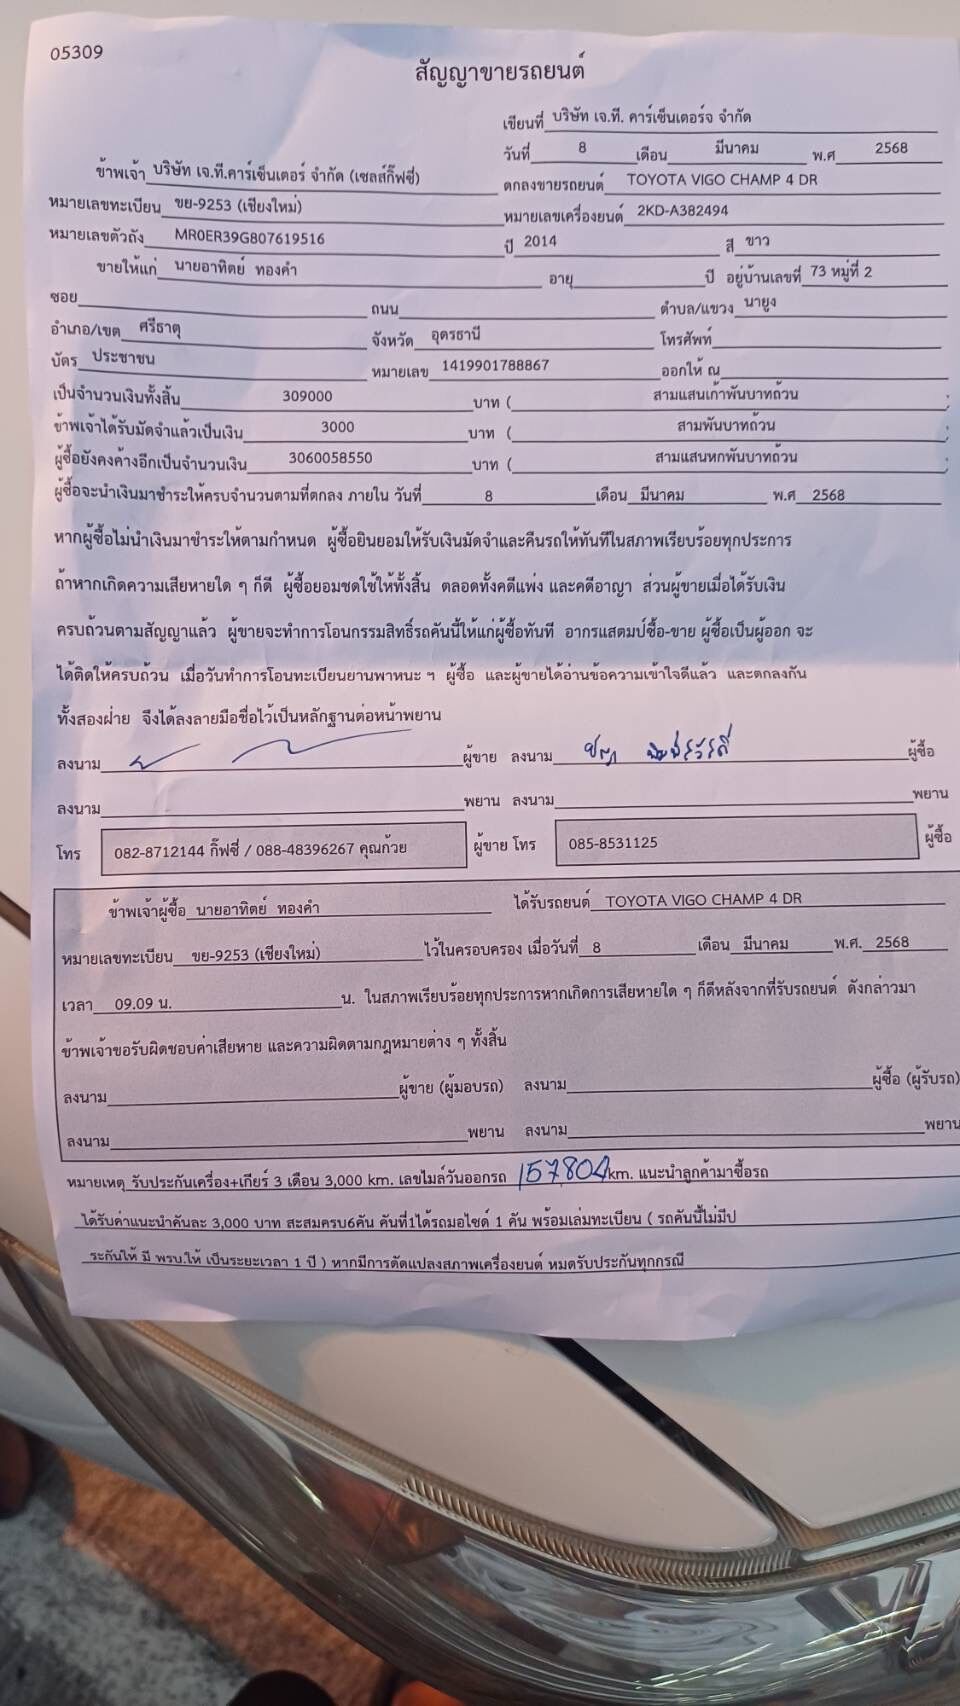 05309
สัญญาขายรถยนต์
เขียนที่ บริษัท เจ.ที. คาร์เซ็นเตอร์จ จำกัด
วันที่ 8 เดือน มีนาคม พ.ศ 2568
ข้าพเจ้า บริษัท เจ.ที.คาร์เซ็นเตอร์ จำกัด (เซลส์กิ๊ฟซี่) ตกลงขายรถยนต์ TOYOTA VIGO CHAMP 4 DR
หมายเลขทะเบียน ขย-9253 (เชียงใหม่) หมายเลขเครื่องยนต์ 2KD-A382494
หมายเลขตัวถัง MR0ER39G807619516 ปี 2014 สี ขาว
ขายให้แก่ นายอาทิตย์ ทองคำ อายุ ปี อยู่บ้านเลขที่ 73 หมู่ที่ 2
ซอย ถนน ตำบล/แขวง นายูง
อำเภอ/เขต ศรีธาตุ จังหวัด อุดรธานี โทรศัพท์
บัตร ประชาชน หมายเลข 1419901788867 ออกให้ ณ
เป็นจำนวนเงินทั้งสิ้น 309000 บาท ( สามแสนเก้าพันบาทถ้วน )
ข้าพเจ้าได้รับมัดจำแล้วเป็นเงิน 3000 บาท ( สามพันบาทถ้วน )
ผู้ซื้อยังคงค้างอีกเป็นจำนวนเงิน 3060058550 บาท ( สามแสนหกพันบาทถ้วน )
ผู้ซื้อจะนำเงินมาชำระให้ครบจำนวนตามที่ตกลง ภายใน วันที่ 8 เดือน มีนาคม พ.ศ 2568
หากผู้ซื้อไม่นำเงินมาชำระให้ตามกำหนด ผู้ซื้อยินยอมให้รับเงินมัดจำและคืนรถให้ทันทีในสภาพเรียบร้อยทุกประการ
ถ้าหากเกิดความเสียหายใด ๆ ก็ดี ผู้ซื้อยอมชดใช้ให้ทั้งสิ้น ตลอดทั้งคดีแพ่ง และคดีอาญา ส่วนผู้ขายเมื่อได้รับเงิน
ครบถ้วนตามสัญญาแล้ว ผู้ขายจะทำการโอนกรรมสิทธิ์รถคันนี้ให้แก่ผู้ซื้อทันที อากรแสตมป์ซื้อ-ขาย ผู้ซื้อเป็นผู้ออก จะ
ได้ติดให้ครบถ้วน เมื่อวันทำการโอนทะเบียนยานพาหนะ ฯ ผู้ซื้อ และผู้ขายได้อ่านข้อความเข้าใจดีแล้ว และตกลงกัน
ทั้งสองฝ่าย จึงได้ลงลายมือชื่อไว้เป็นหลักฐานต่อหน้าพยาน
ลงนาม ผู้ขาย ลงนาม ผู้ซื้อ
ลงนาม พยาน ลงนาม พยาน
โทร 082-8712144 กิ๊ฟซี่ / 088-48396267 คุณก้วย ผู้ขาย โทร 085-8531125 ผู้ซื้อ
ข้าพเจ้าผู้ซื้อ นายอาทิตย์ ทองคำ ได้รับรถยนต์ TOYOTA VIGO CHAMP 4 DR
หมายเลขทะเบียน ขย-9253 (เชียงใหม่) ไว้ในครอบครอง เมื่อวันที่ 8 เดือน มีนาคม พ.ศ. 2568
เวลา 09.09 น. น. ในสภาพเรียบร้อยทุกประการหากเกิดการเสียหายใด ๆ ก็ดีหลังจากที่รับรถยนต์ ดังกล่าวมา
ข้าพเจ้าขอรับผิดชอบค่าเสียหาย และความผิดตามกฎหมายต่าง ๆ ทั้งสิ้น
ลงนาม ผู้ขาย (ผู้มอบรถ) ลงนาม ผู้ซื้อ (ผู้รับรถ)
ลงนาม พยาน ลงนาม พยาน
หมายเหตุ รับประกันเครื่อง+เกียร์ 3 เดือน 3,000 km. เลขไมล์วันออกรถ 157,804 km. แนะนำลูกค้ามาซื้อรถ
ได้รับค่าแนะนำคันละ 3,000 บาท สะสมครบ6คัน คันที่1ได้รถมอไซด์ 1 คัน พร้อมเล่มทะเบียน ( รถคันนี้ไม่มีป
ระกันให้ มี พรบ.ให้ เป็นระยะเวลา 1 ปี ) หากมีการดัดแปลงสภาพเครื่องยนต์ หมดรับประกันทุกกรณี